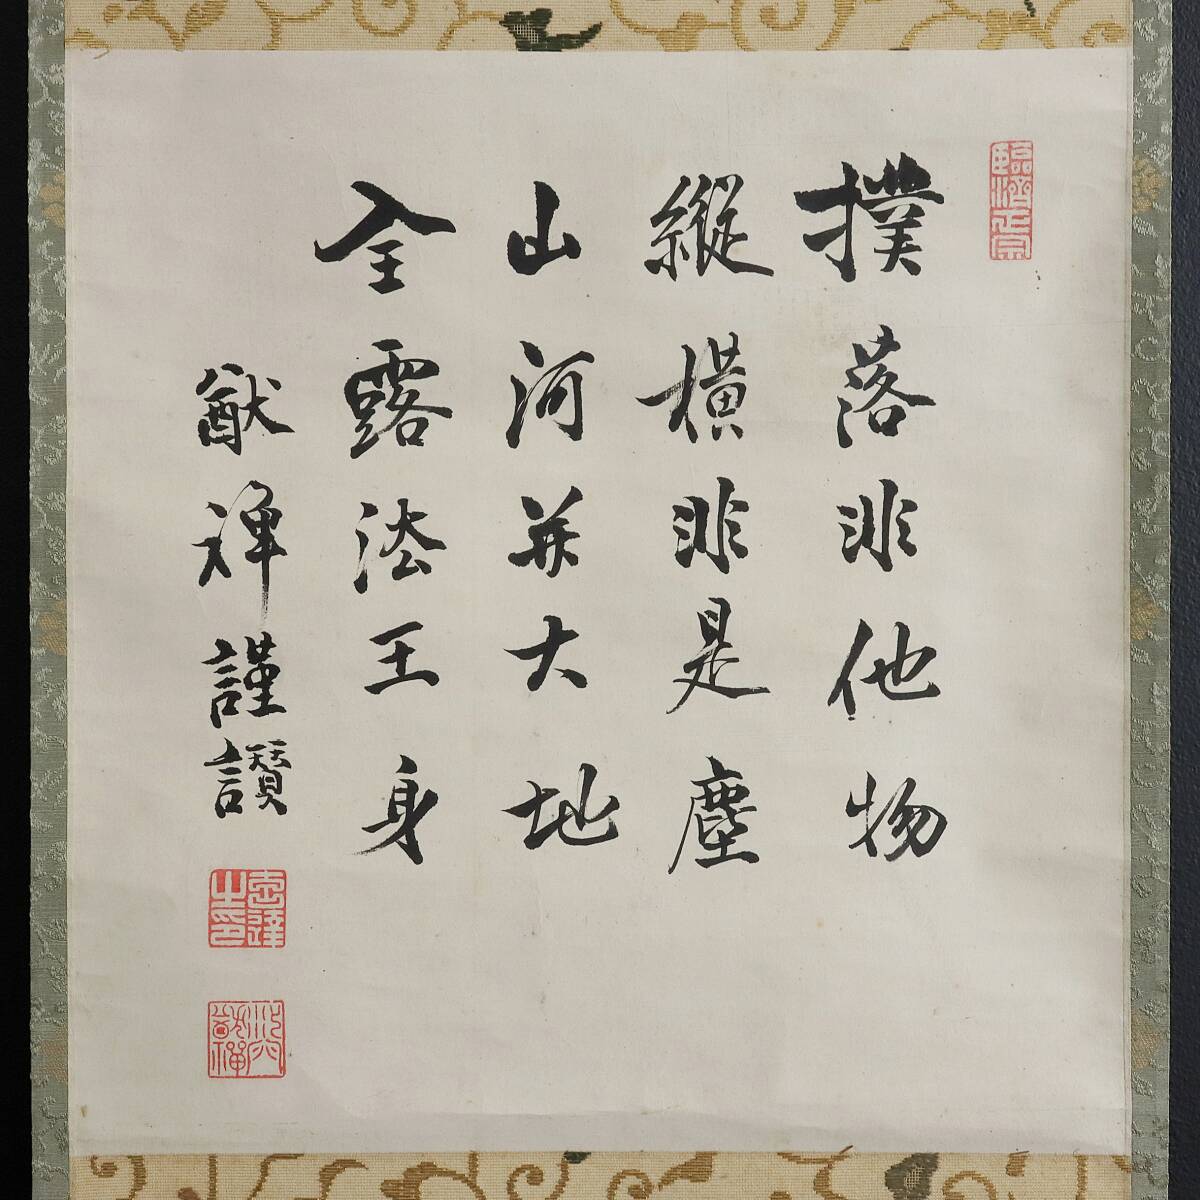 臨濟正宗
撲落非他物
縱橫非是塵
山河并大地
全露法王身
猷禅謹讃